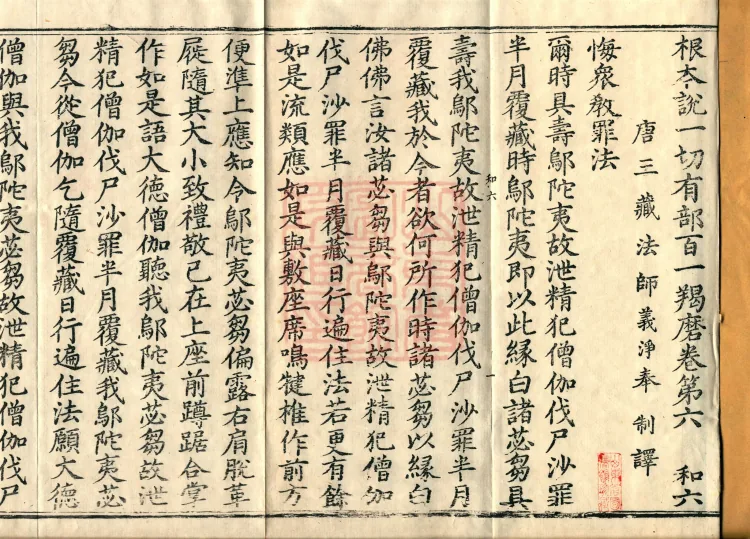 根本說一切有部百一羯磨卷第六 和六
唐三藏法師義淨奉 制譯
悔衆教罪法
爾時具壽鄔陀夷故泄精犯僧伽伐尸沙罪
半月覆藏時鄔陀夷即以此緣白諸苾芻具
壽我鄔陀夷故泄精犯僧伽伐尸沙罪半月
和六 一
覆藏我於今者欲何所作時諸苾芻以緣白
佛佛言汝諸苾芻與鄔陀夷故泄精犯僧伽
伐尸沙罪半月覆藏日行遍住法若更有餘
如是流類應如是與敷座席鳴犍椎作前方
便準上應知令鄔陀夷苾芻偏露右肩脫革
屣隨其大小致禮敬已在上座前蹲踞合掌
作如是語大德僧伽聽我鄔陀夷苾芻故泄
精犯僧伽伐尸沙罪半月覆藏我鄔陀夷苾
芻今從僧伽乞隨覆藏日行遍住法願大德
僧伽與我鄔陀夷苾芻故泄精犯僧伽伐尸